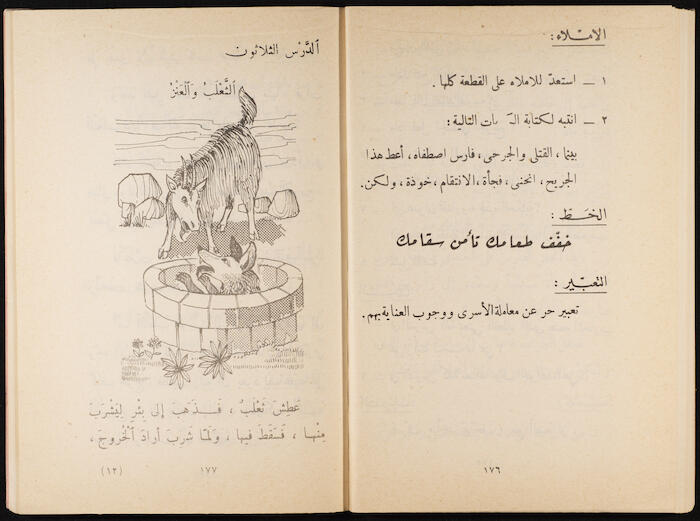 الامْلاء :
١ — استعدّ للاملاء على القطعة كلها .
٢ — انتبه لكتابة التالية :
بينما ، القتلى والجرحى ، فارس اصطفاه ، أعط هذا
الجريح ، انحنى ، فجأة ، الانتقام ، خوذة ، ولكن .
الخَـط :
خفّف طعامك تأمن سقامك
التعبْير :
تعبير حر عن معاملة الأسرى ووجوب العناية بهم .
١٧٦
الدَّرْس الثلاثون
اَلثَّعْلَبُ وَالْعَنْزُ
عَطِشَ ثَعْلَبٌ ، فَـذَهَبَ إلى بِئْرٍ لِيَشْرَبَ
مِنْهـا ، فَسَقَطَ فيها ، وَلَمّا شَرِبَ أرادَ اْلخُروجَ ،
١٧٧
(١٢)